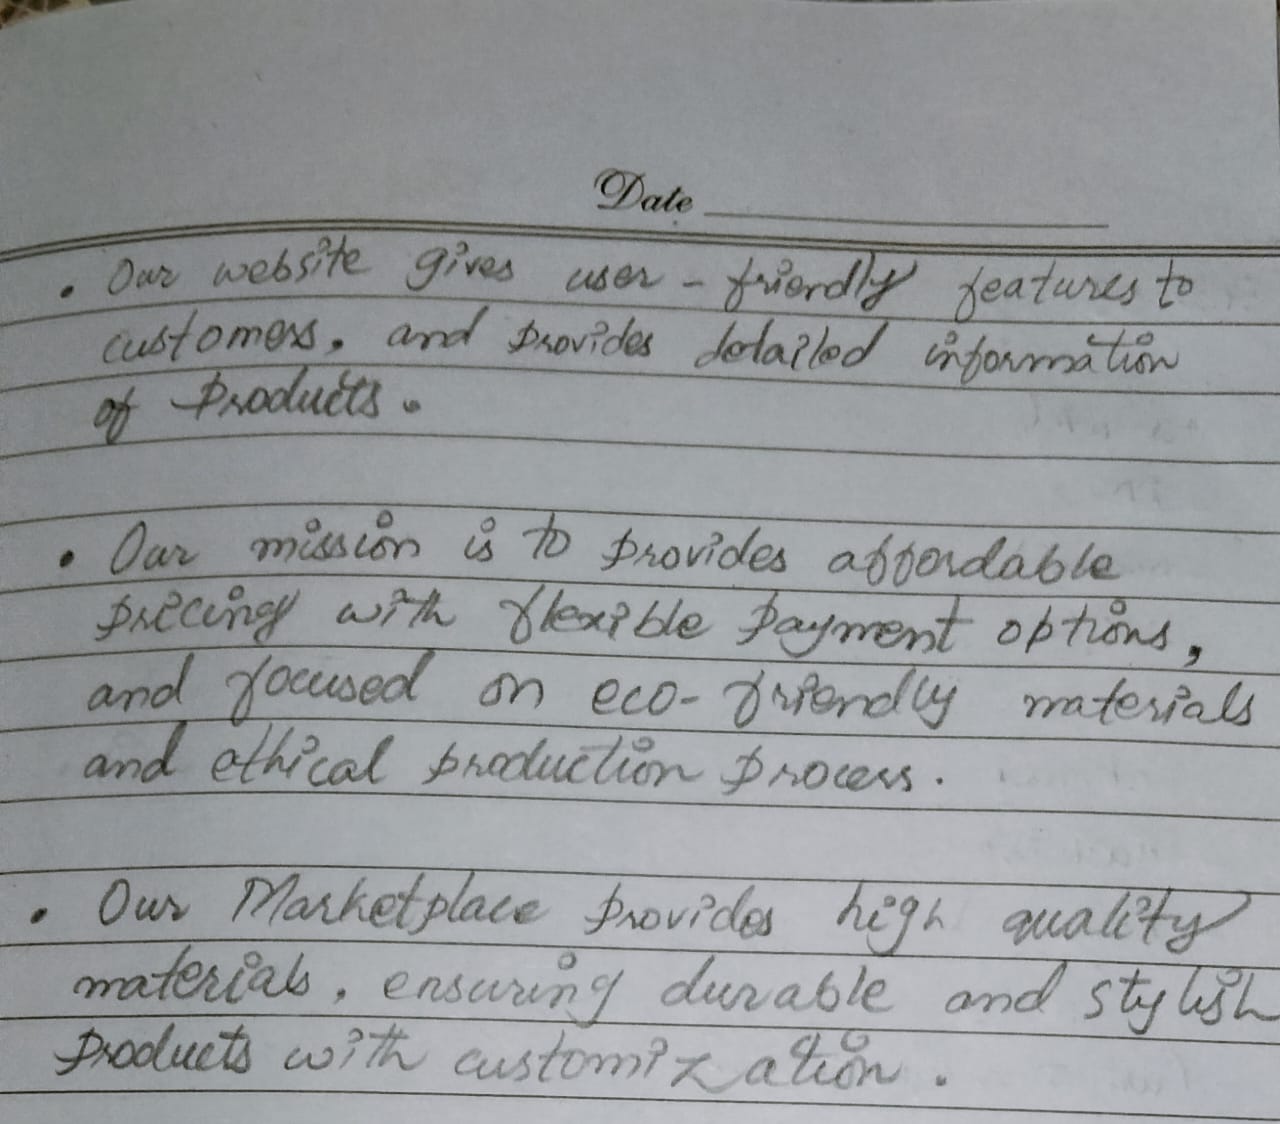 Date
• Our website gives user-friendly features to
customers, and provides detailed information
of products.
• Our mission is to provides affordable
pricing with flexible payment options,
and focused on eco-friendly materials
and ethical production process.
• Our Marketplace provides high quality
materials, ensuring durable and stylish
products with customization.